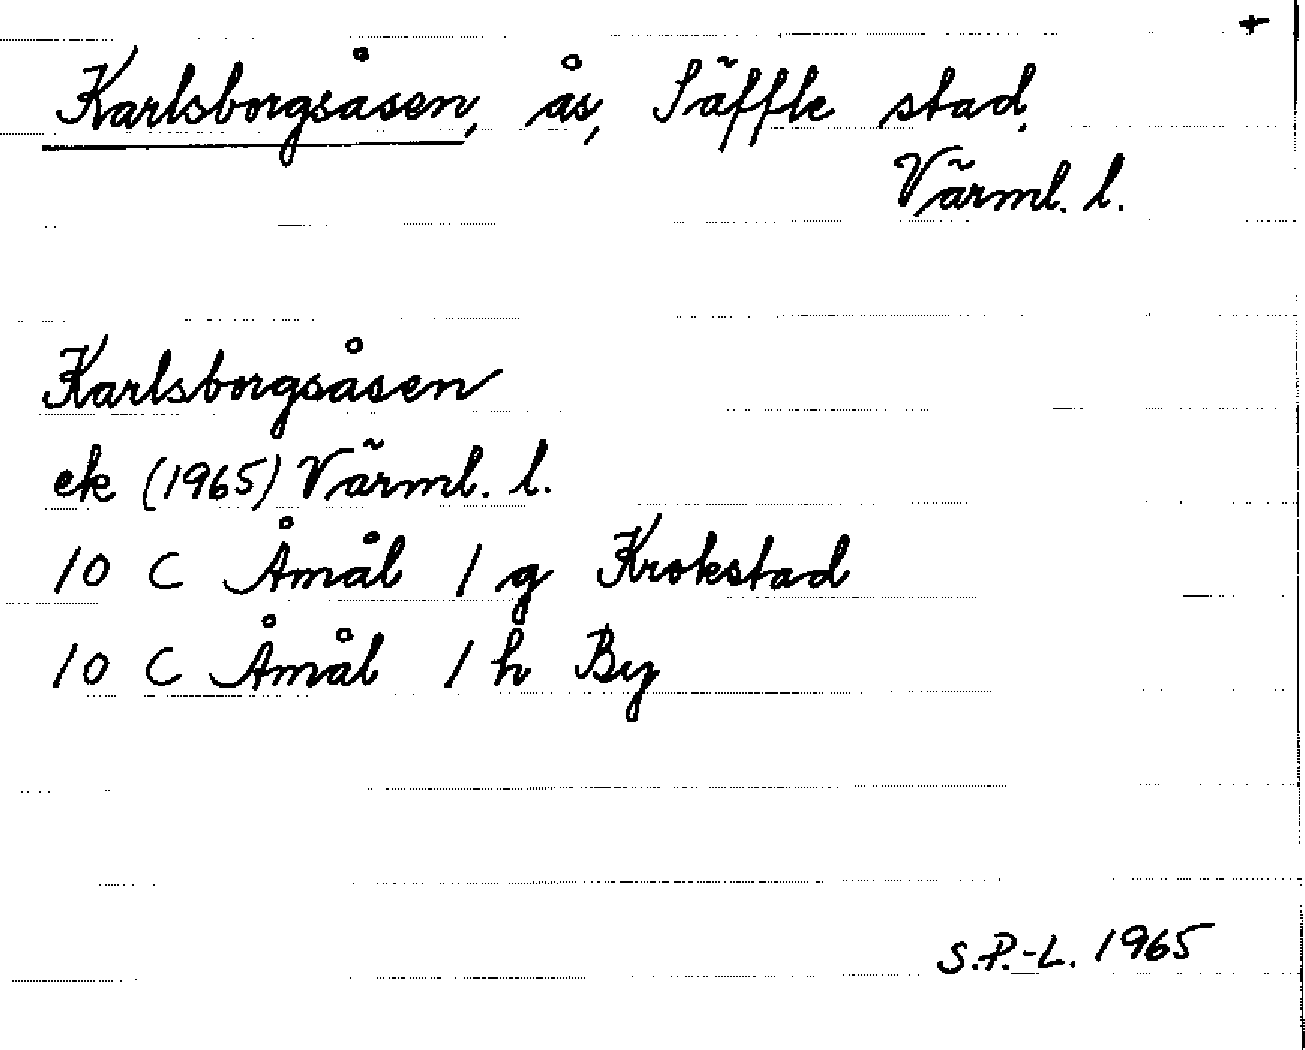 +
Karlsborgsåsen, ås, Säffle stad,
Värml. l.
Karlsborgsåsen
ek (1965) Värml. l.
10 C Åmål 1 g Krokstad
10 C Åmål 1 h By
S.P.-L. 1965